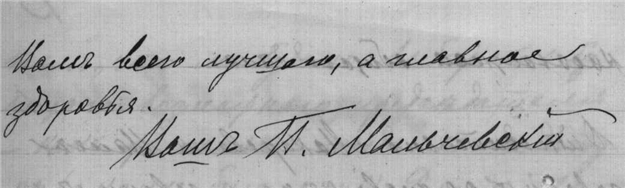 Вамъ всего лучшаго, а главное
здоровья.
Вашъ П. Мальчевскій